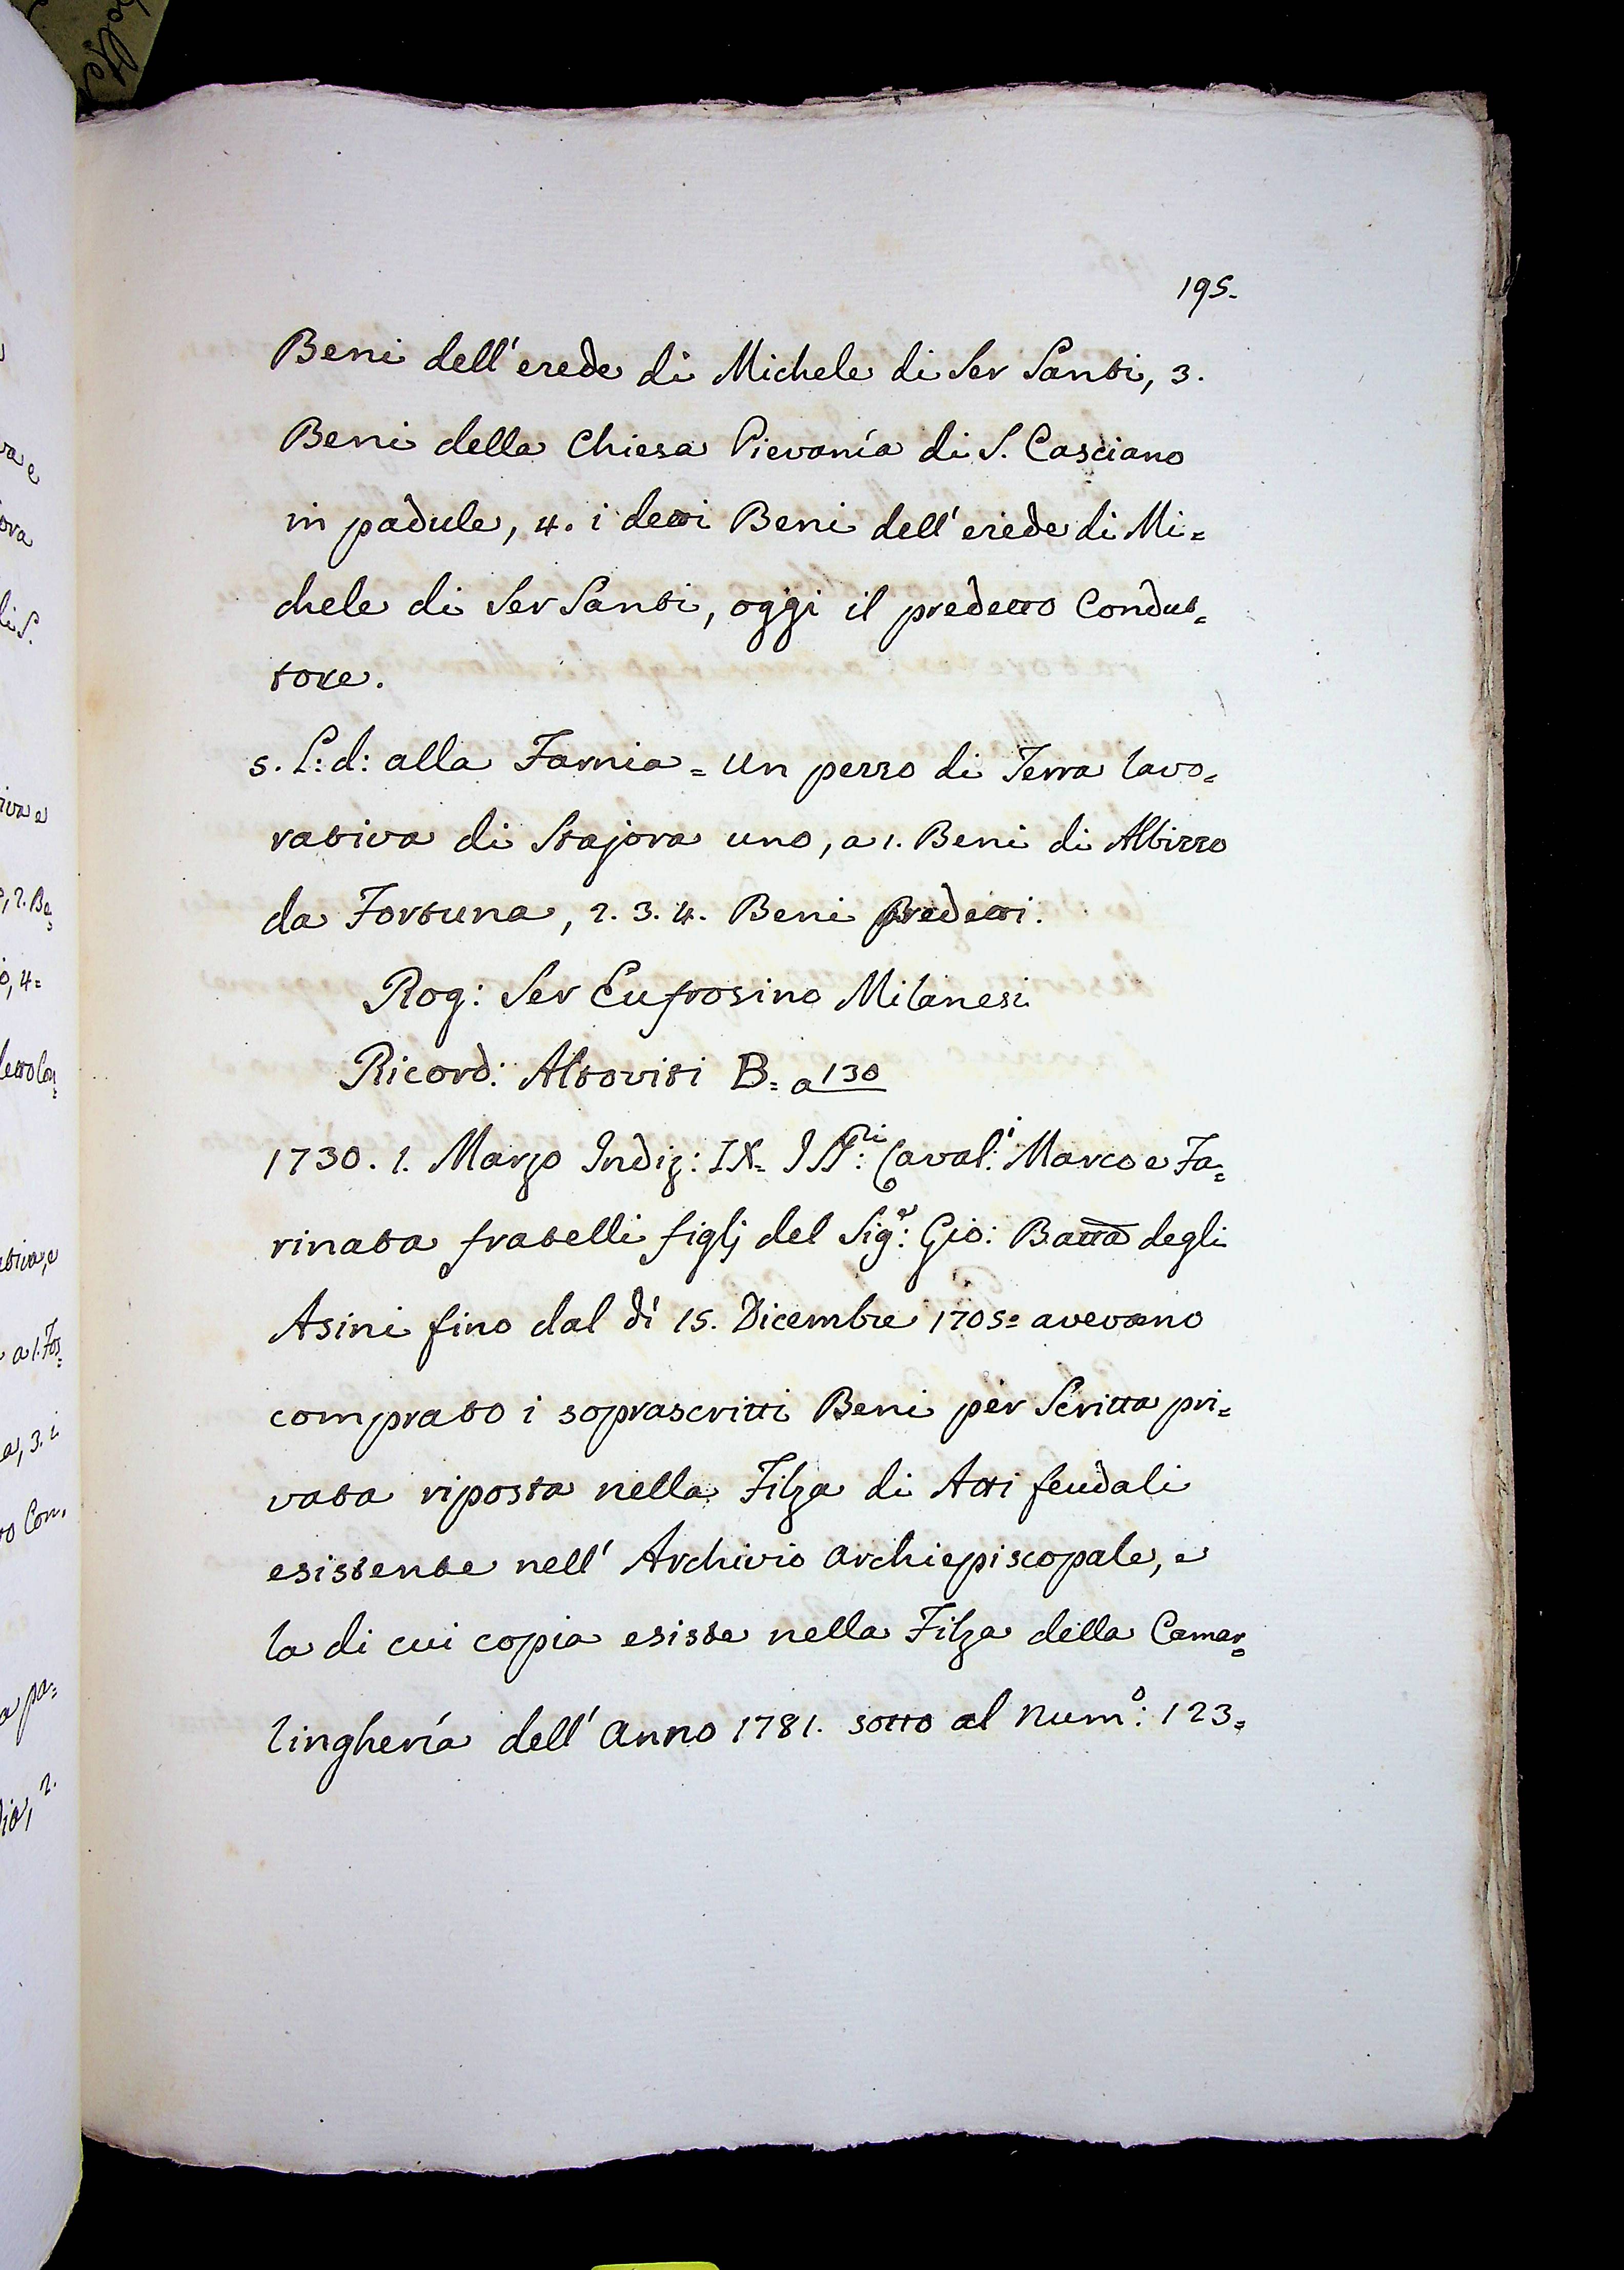 195.
Beni dell'erede di Michele di Ser Santi, 3.
Beni della Chiesa Pievanía di S. Casciano
in padule, 4. i detti Beni dell'erede di Mi=
chele di Ser Santi, oggi il predetto Condut=
tore.
5. L: d: alla Farnia = un pezzo di Terra lavo=
rativa di Stajora uno, a 1. Beni di Albizzo
da Fortuna, 2. 3. 4. Beni predetti.
Rog: Ser Eufrosino Milanesi
Ricord: Altoviti B= a 130
1730. 1. Marzo Indiz: IX= I SS:ri Caval:i Marco e Fa=
rinata fratelli figlj del Sig:r Gio: Batta degli
Asini fino dal dí 15. Dicembre 1705= avevano
comprato i soprascritti Beni per Scritta pri=
vata riposta nella Filza di Atti feudali
esistente nell' Archivio Archiepiscopale, e
la di cui copia esiste nella Filza della Camar=
linghería dell' Anno 1781. sotto al Num:o 123=